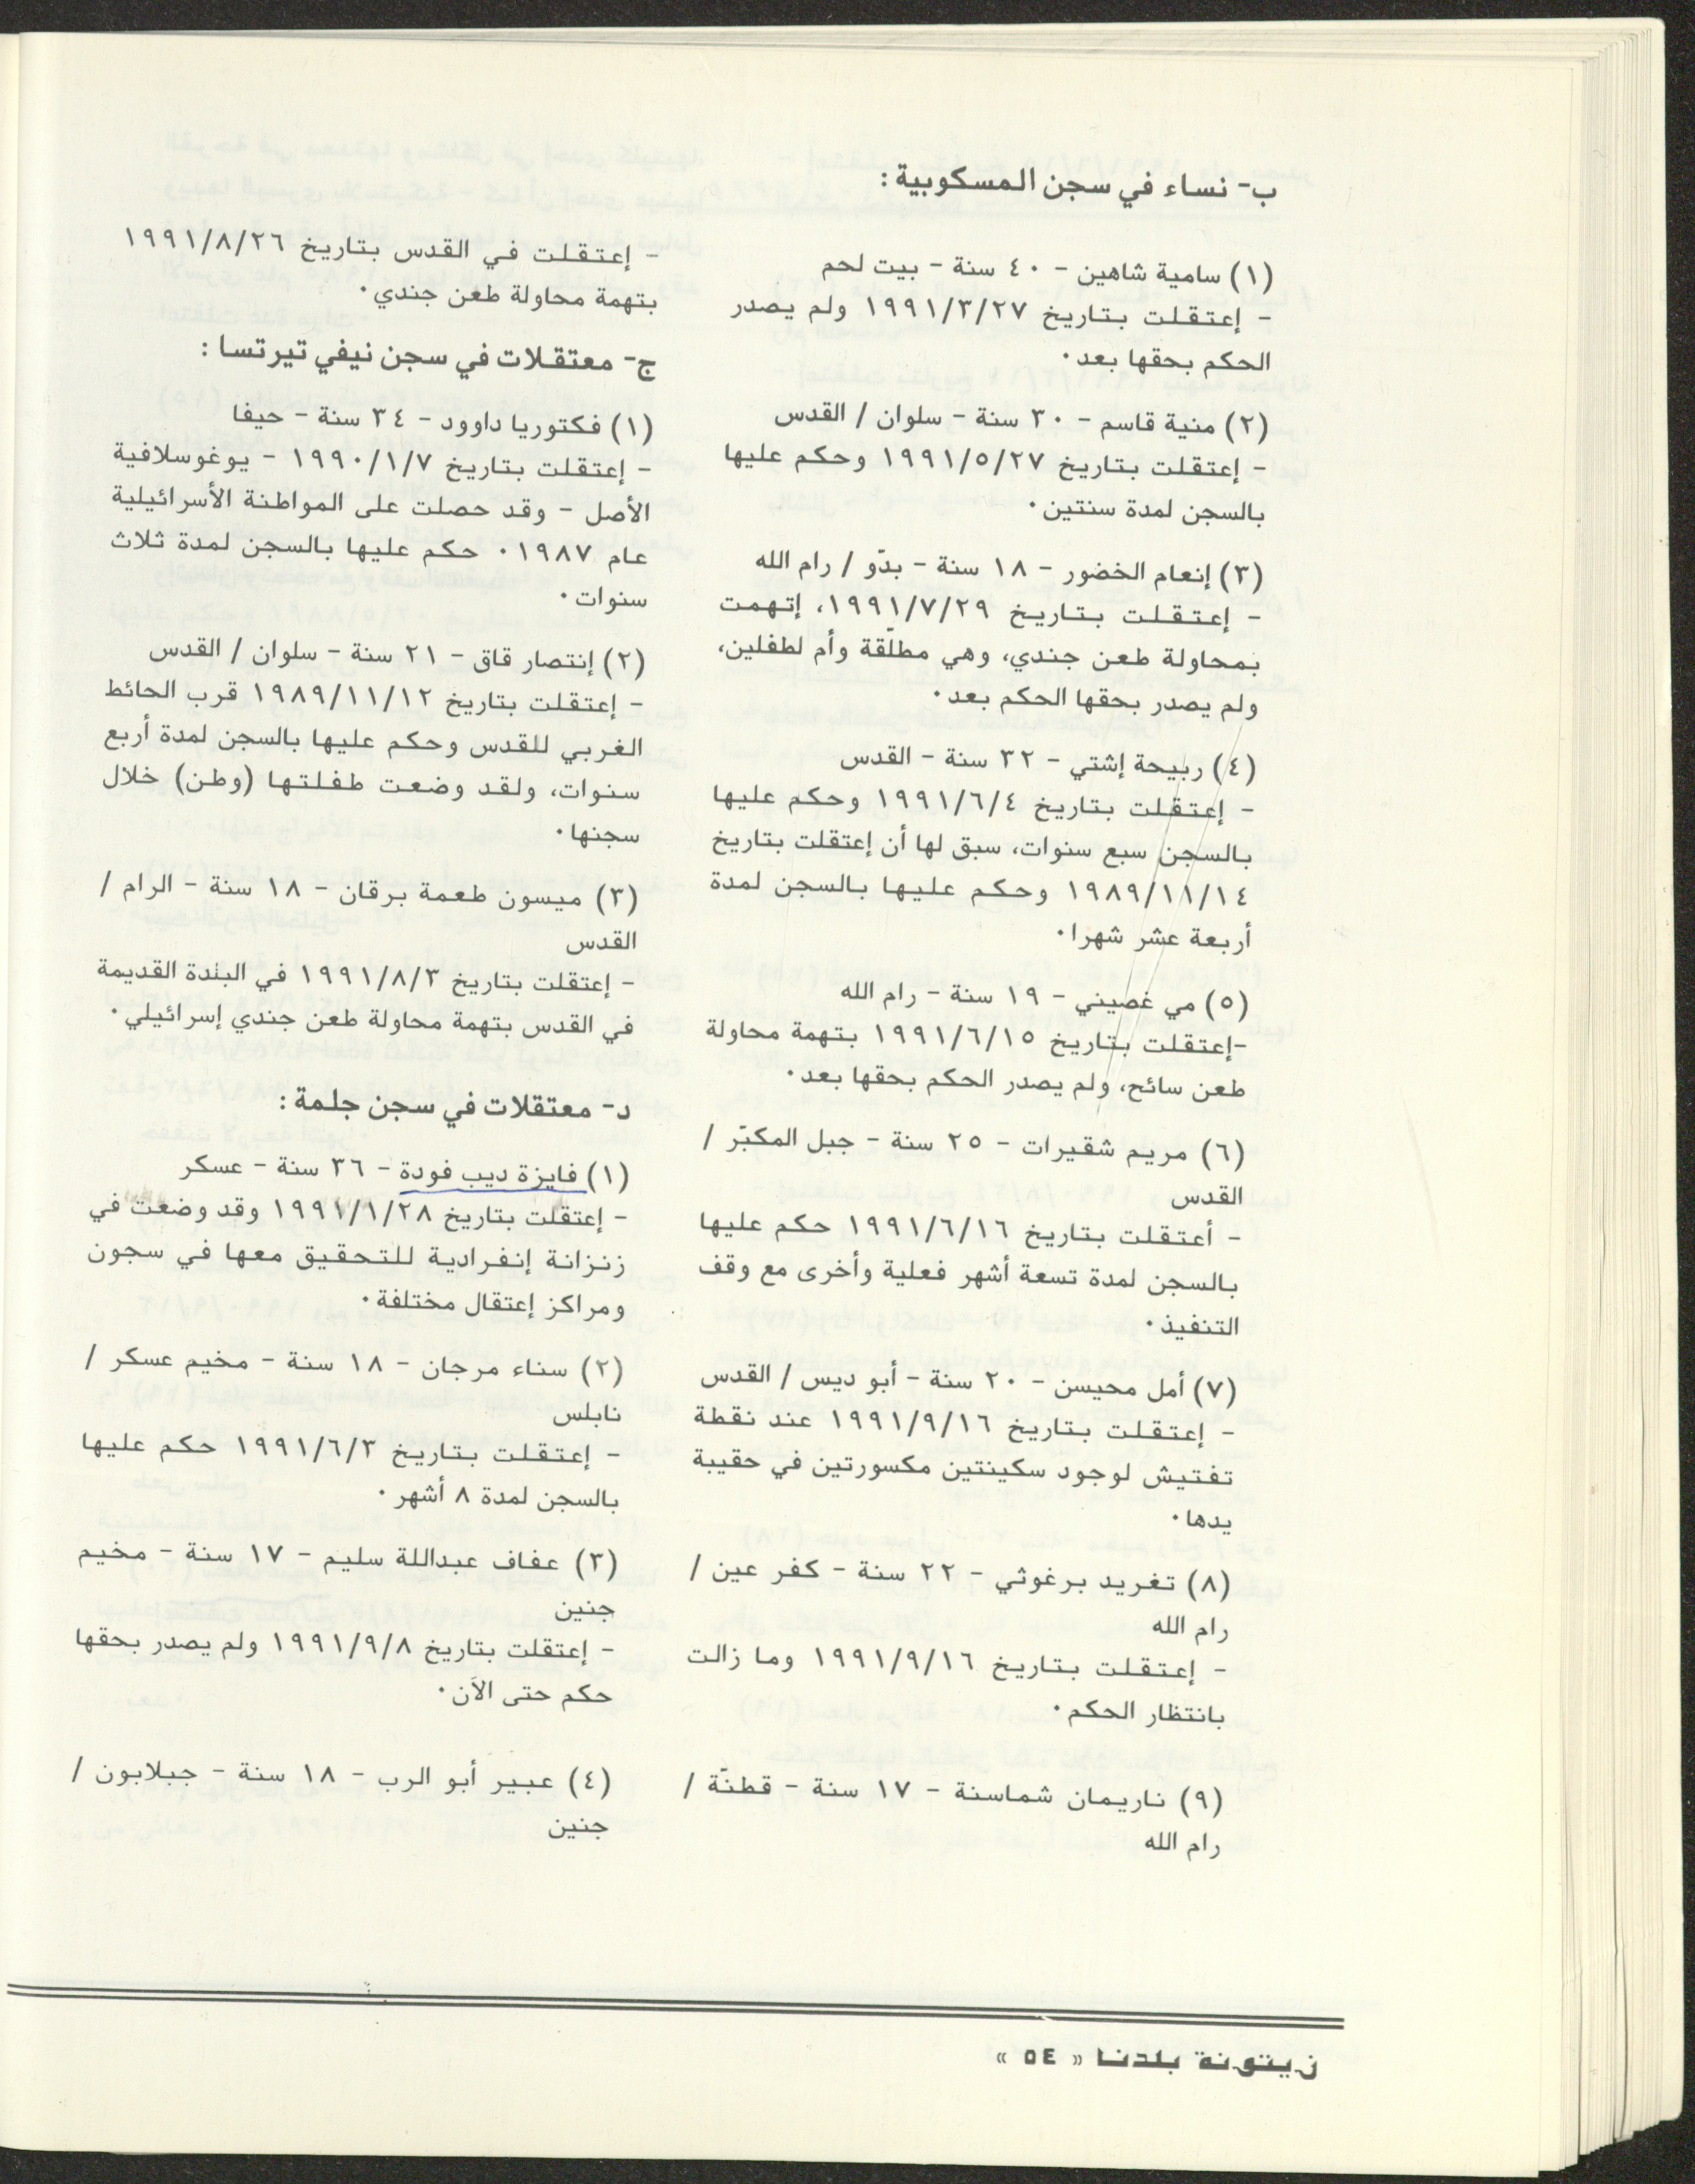 ب- نساء في سجن المسكوبية :
(١) سامية شاهين - ٤٠ سنة - بيت لحم
- إعتقلت بتاريخ ١٩٩١/٣/٢٧ ولم يصدر
الحكم بحقها بعد٠
(٢) منية قاسم - ٣٠ سنة - سلوان / القدس
- إعتقلت بتاريخ ١٩٩١/٥/٢٧ وحكم عليها
بالسجن لمدة سنتين٠
(٣) إنعام الخضور - ١٨ سنة - بدّو / رام الله
- إعتقلت بتاريخ ١٩٩١/٧/٢٩، إتهمت
بمحاولة طعن جندي، وهي مطلّقة وأم لطفلين،
ولم يصدر بحقها الحكم بعد٠
(٤) ربيحة إشتي - ٣٢ سنة - القدس
- إعتقلت بتاريخ ١٩٩١/٦/٤ وحكم عليها
بالسجن سبع سنوات، سبق لها أن إعتقلت بتاريخ
١٩٨٩/١١/١٤ وحكم عليها بالسجن لمدة
أربعة عشر شهرا٠
(٥) مي غصيني - ١٩ سنة - رام الله
-إعتقلت بتاريخ ١٩٩١/٦/١٥ بتهمة محاولة
طعن سائح، ولم يصدر الحكم بحقها بعد٠
(٦) مريم شقيرات - ٢٥ سنة - جبل المكبّر /
القدس
- أعتقلت بتاريخ ١٩٩١/٦/١٦ حكم عليها
بالسجن لمدة تسعة أشهر فعلية وأخرى مع وقف
التنفيذ٠
(٧) أمل محيسن - ٢٠ سنة - أبو ديس / القدس
- إعتقلت بتاريخ ١٩٩١/٩/١٦ عند نقطة
تفتيش لوجود سكينتين مكسورتين في حقيبة
يدها٠
(٨) تغريد برغوثي - ٢٢ سنة - كفر عين /
رام الله
- إعتقلت بتاريخ ١٩٩١/٩/١٦ وما زالت
بانتظار الحكم٠
(٩) ناريمان شماسنة - ١٧ سنة - قطنّة /
رام الله
- إعتقلت في القدس بتاريخ ١٩٩١/٨/٢٦
بتهمة محاولة طعن جندي٠
ج- معتقلات في سجن نيفي تيرتسا :
(١) فكتوريا داوود - ٣٤ سنة - حيفا
- إعتقلت بتاريخ ١٩٩٠/١/٧ - يوغوسلافية
الأصل - وقد حصلت على المواطنة الأسرائيلية
عام ١٩٨٧٠ حكم عليها بالسجن لمدة ثلاث
سنوات٠
(٢) إنتصار قاق - ٢١ سنة - سلوان / القدس
- إعتقلت بتاريخ ١٩٨٩/١١/١٢ قرب الحائط
الغربي للقدس وحكم عليها بالسجن لمدة أربع
سنوات، ولقد وضعت طفلتها (وطن) خلال
سجنها٠
(٣) ميسون طعمة برقان - ١٨ سنة - الرام /
القدس
- إعتقلت بتاريخ ١٩٩١/٨/٣ في البلدة القديمة
في القدس بتهمة محاولة طعن جندي إسرائيلي٠
د- معتقلات في سجن جلمة :
(١) فايزة ديب فودة - ٣٦ سنة - عسكر
- إعتقلت بتاريخ ١٩٩١/١/٢٨ وقد وضعت في
زنزانة إنفرادية للتحقيق معها في سجون
ومراكز إعتقال مختلفة٠
(٢) سناء مرجان - ١٨ سنة - مخيم عسكر /
نابلس
- إعتقلت بتاريخ ١٩٩١/٦/٣ حكم عليها
بالسجن لمدة ٨ أشهر٠
(٣) عفاف عبداللة سليم - ١٧ سنة - مخيم
جنين
- إعتقلت بتاريخ ١٩٩١/٩/٨ ولم يصدر بحقها
حكم حتى الآن٠
(٤) عبير أبو الرب - ١٨ سنة - جبلابون /
جنين
زيتونة بلدنا « ٥٤ »